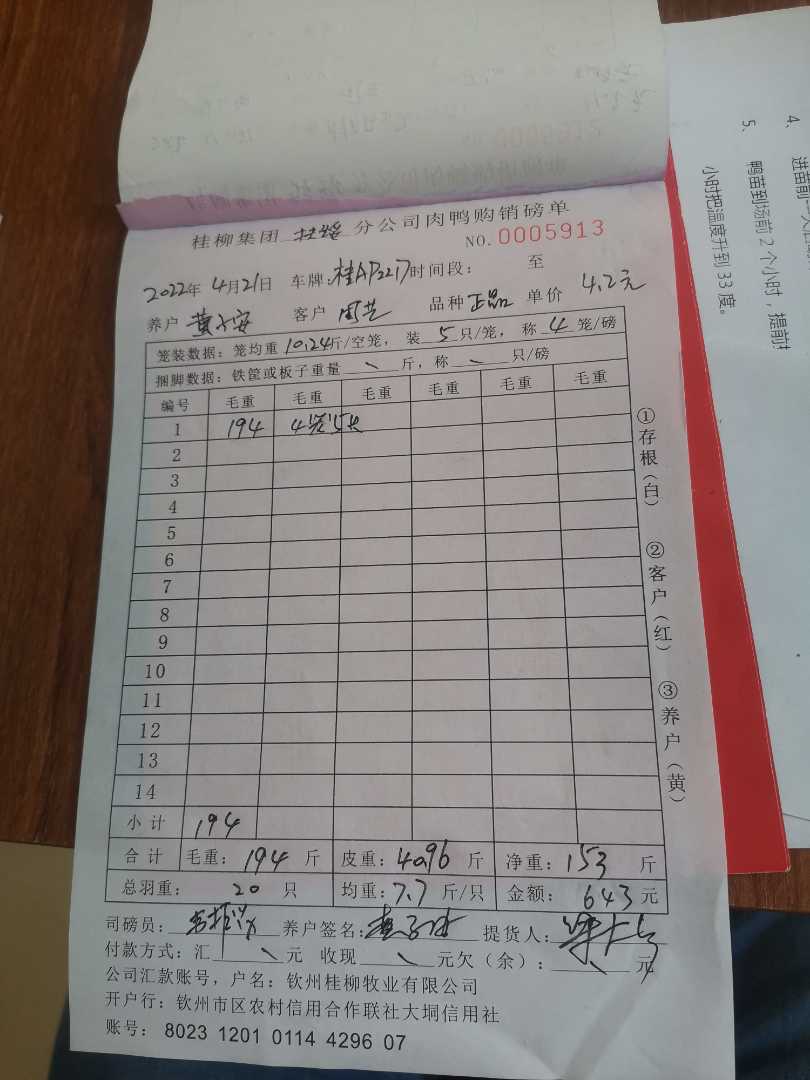 桂柳集团 扶绥 分公司肉鸭购销磅单
NO.0005913
2022年 4月21日 车牌:桂AP2217 时间段: 至
养户 黄子安 客户 周芝 品种 正品 单价 4.2元
笼装数据:笼均重 10.24 斤/空笼,装 5 只/笼,称 4 笼/磅
捆脚数据:铁筐或板子重量 斤,称 只/磅
编号 毛重 毛重 毛重 毛重 毛重 毛重
1 194 4笼5只
2
3
4
5
6
7
8
9
10
11
12
13
14
小计 194
合计 毛重: 194 斤 皮重: 40.96 斤 净重: 153 斤
总羽重: 20 只 均重: 7.7 斤/只 金额: 643 元
司磅员: 养户签名: 提货人:
付款方式:汇 元 收现 元欠(余): 元
公司汇款账号,户名:钦州桂柳牧业有限公司
开户行:钦州市区农村信用合作联社大垌信用社
账号: 8023 1201 0114 4296 07
①存根(白) ②客户(红) ③养户(黄)
0005912
4.
5. 鸭苗到场前2个小时,提前
小时把温度升到33度。